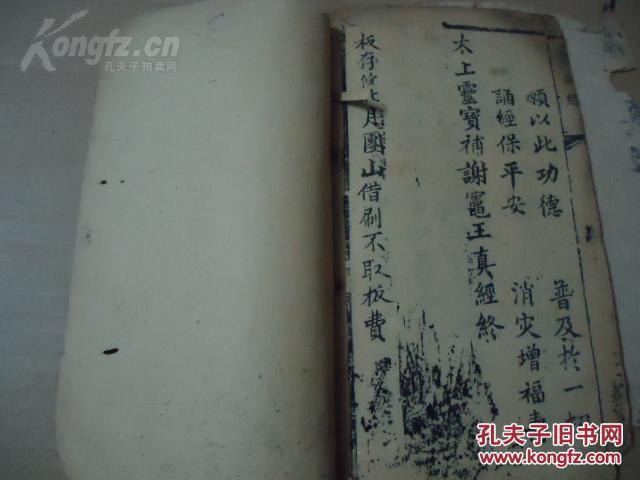 願以此功德　普及於一切
誦經保平安　消灾增福壽
太上靈寶補謝竈王真經終
板存 團山借刷不取板費
Kongfz.cn
孔夫子拍卖网
孔夫子旧书网
www.kongfz.com